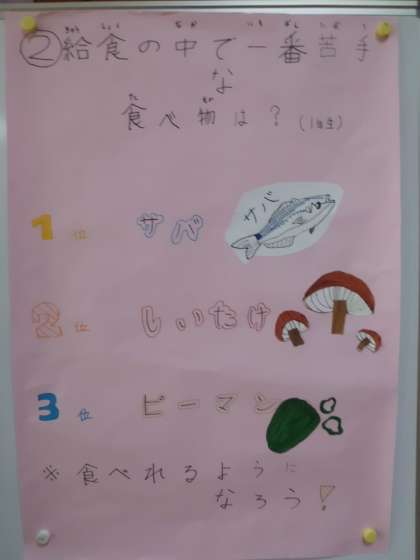 ②給食の中で一番苦手
な
食べ物は？（1年生）
1位 サバ
サバ
2位 しいたけ
3位 ピーマン
※食べれるように
なろう！